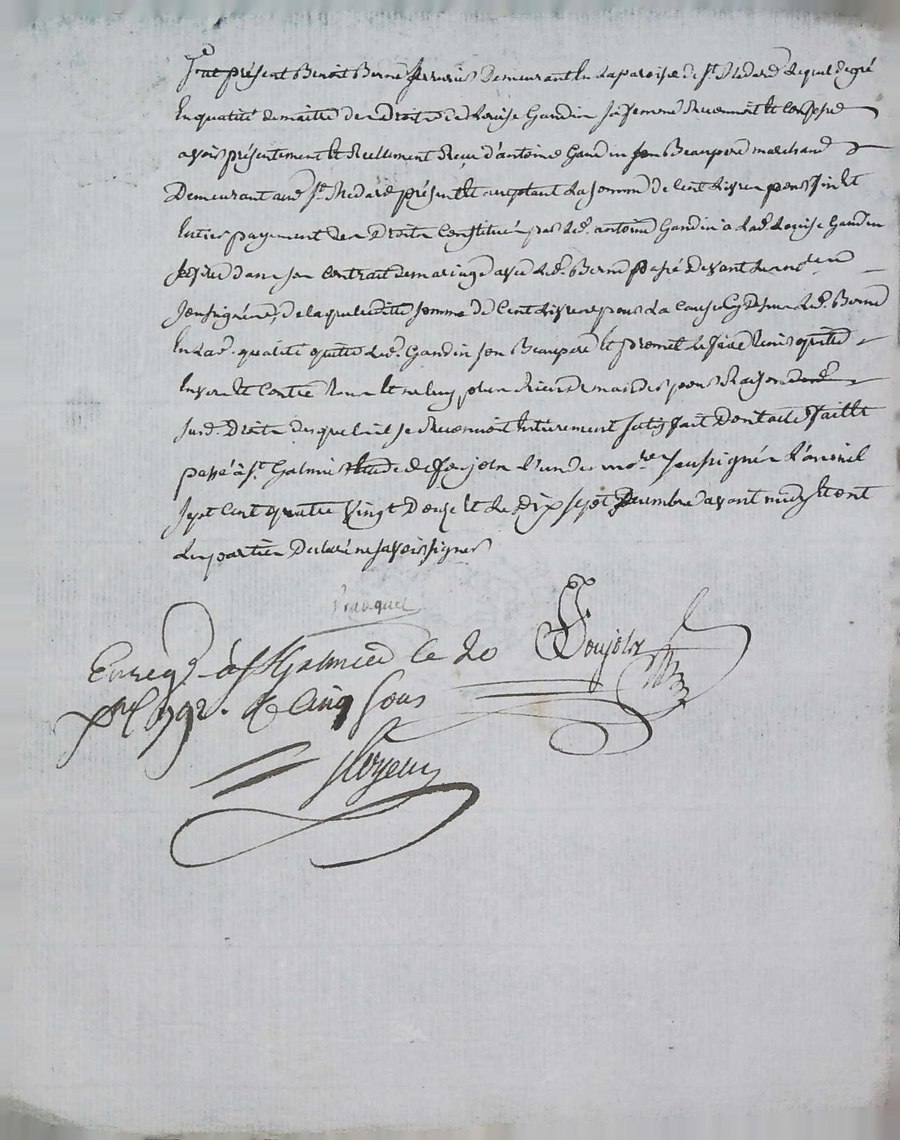 fut présent Benoit Berne serrurier demeurant en la paroisse de St. Medard lequel degré
en qualité de maitre des droits de Louise Gandin sa femme reconnoit et confesse
avoir présentement et reellement reçu d'antoine Gandin son Beaupere marchand
Demeurant aud. St. Medard présent et acceptant la somme de cent livres pour fin et
entier payement des Droits constitués par led. antoine Gandin à lad. Louise Gandin
sa fille dans son contrat de mariage avec led. Berne passé devant les no.res
soussignés, de laquelle ditte somme de Cent livres pour la cause cy dessus led. Berne
en lad. qualité quitte led. Gandin son Beaupere et promet le faire tenir quitte
envers et contre tous et ne luy plus rien demander pour Raison
susd. Droits desquels il se reconnoit entierement satisfait Dont acte faitte
passé à St. Galmier Etude de Soujolx l'un des no.res soussignés l'an mil
sept cent quatre vingt Douze et le Dix sept Decembre avant midy et ont
les parties Declaré ne savoir signer
Enregé à St Galmier le 20
xbre 1792. R cinq sous
Soujolx